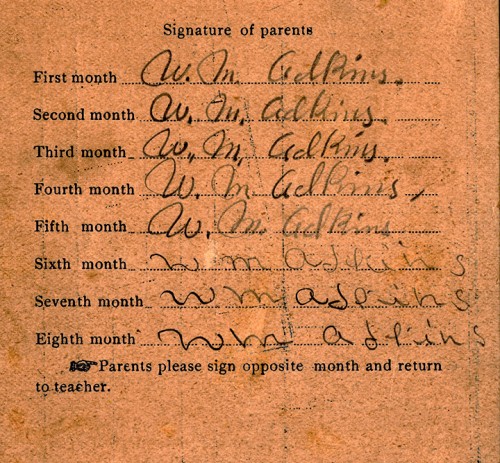 Signature of parents
First month W. M. Adkins.
Second month W. M. Adkins.
Third month W. M. Adkins.
Fourth month W. M. Adkins,
Fifth month W. M. Adkins
Sixth month W M Adkins
Seventh month W M Adkins
Eighth month W M Adkins
☞ Parents please sign opposite month and return
to teacher.